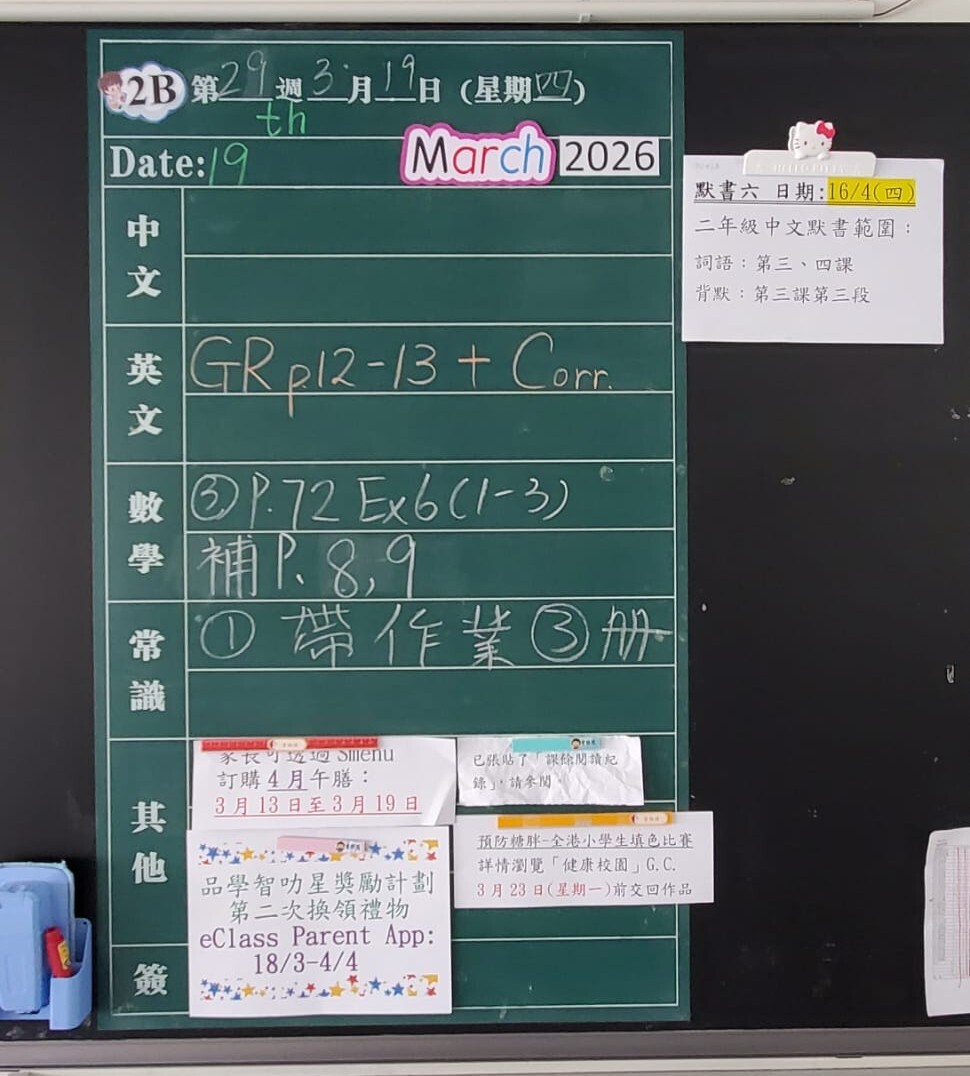 2B 第29週3月19日(星期四)
th
Date:19 March 2026
中文
英文
GR p.12-13 + Corr.
數學
③P.72 Ex6(1-3)
補P. 8,9
常識
① 帶作業③冊
其他
家長可透過Smenu
訂購4月午膳:
3月13日至3月19日
已張貼了「課餘閱讀紀
錄」,請參閱。
預防糖胖-全港小學生填色比賽
詳情瀏覽「健康校園」G.C.
3月23日(星期一)前交回作品
品學智叻星獎勵計劃
第二次換領禮物
eClass Parent App:
18/3-4/4
簽
默書六 日期:16/4(四)
二年級中文默書範圍:
詞語:第三、四課
背默:第三課第三段